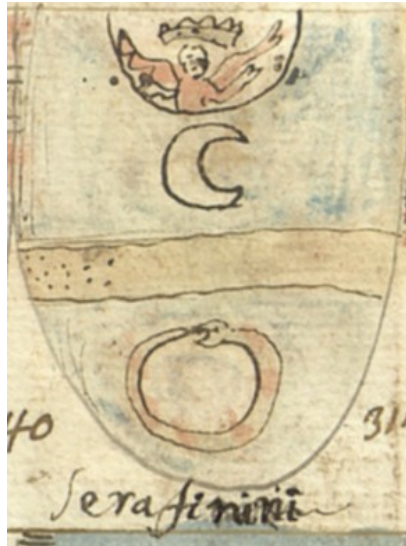 40
31
Serafinini